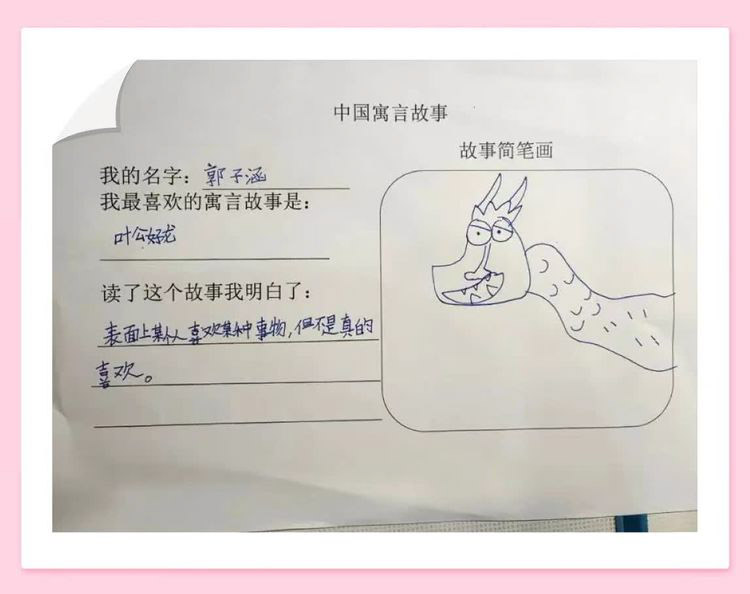 中国寓言故事
故事简笔画
我的名字：郭子涵
我最喜欢的寓言故事是：
叶公好龙
读了这个故事我明白了：
表面上某人喜欢某种事物，但不是真的
喜欢。